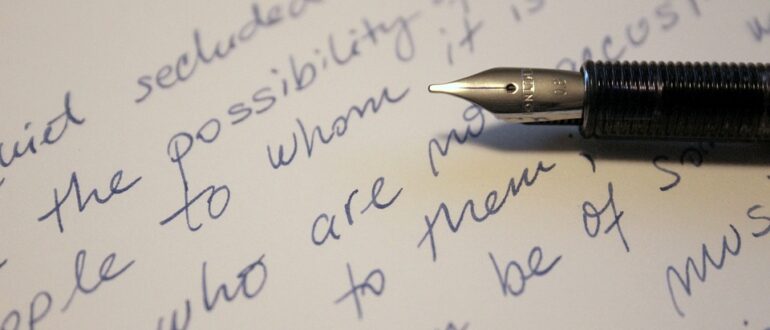 uiet secluded
the possibility
ople to whom it is
who are no accus
to them;
be of so
mus